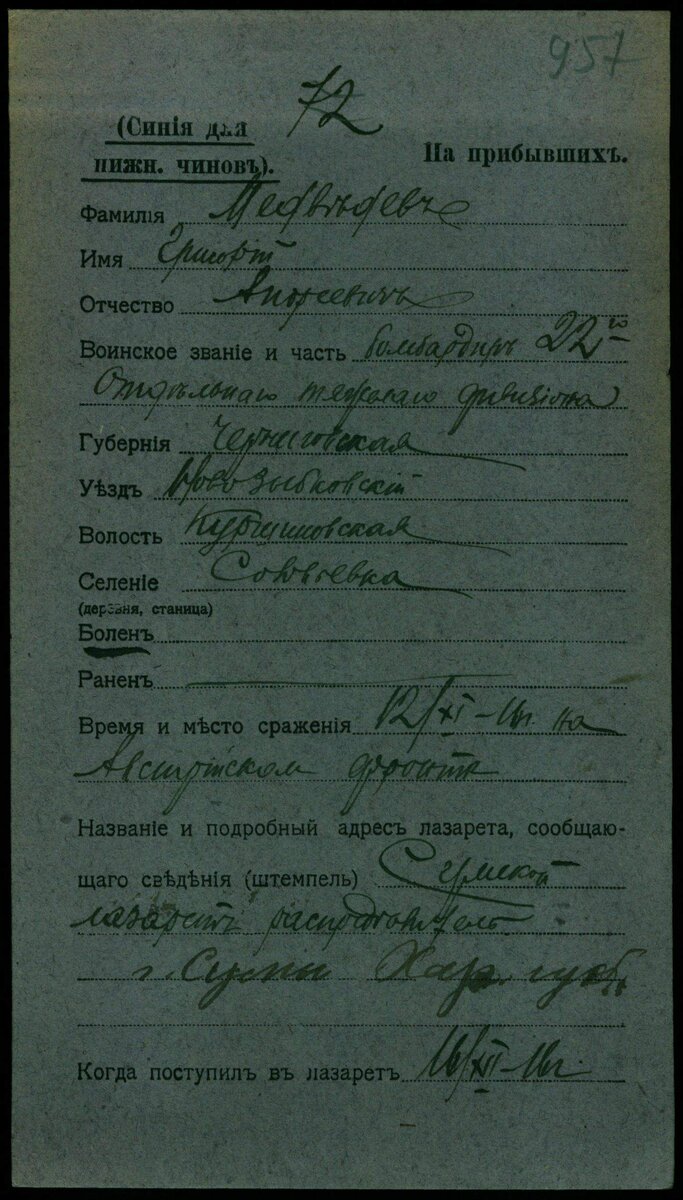 957
72
(Синія для
нижн. чиновъ).
На прибывшихъ.
Фамилія Медвѣдевъ
Имя
Отчество
Воинское званіе и часть бомбардиръ 22го
Отдѣльнаго тяжелаго дивизіона
Губернія Черниговская
Уѣздъ Новозыбковскій
Волость
Селеніе Соловьевка
(деревня, станица)
Боленъ
Раненъ
Время и мѣсто сраженія 12/XI-16г. на
Австрійскомъ фронтѣ
Названіе и подробный адресъ лазарета, сообщаю-
щаго свѣдѣнія (штемпель) Сумской
лазаретъ распредѣлитель
г. Сумы Хар. губ.
Когда поступилъ въ лазаретъ 16/XII-16г.